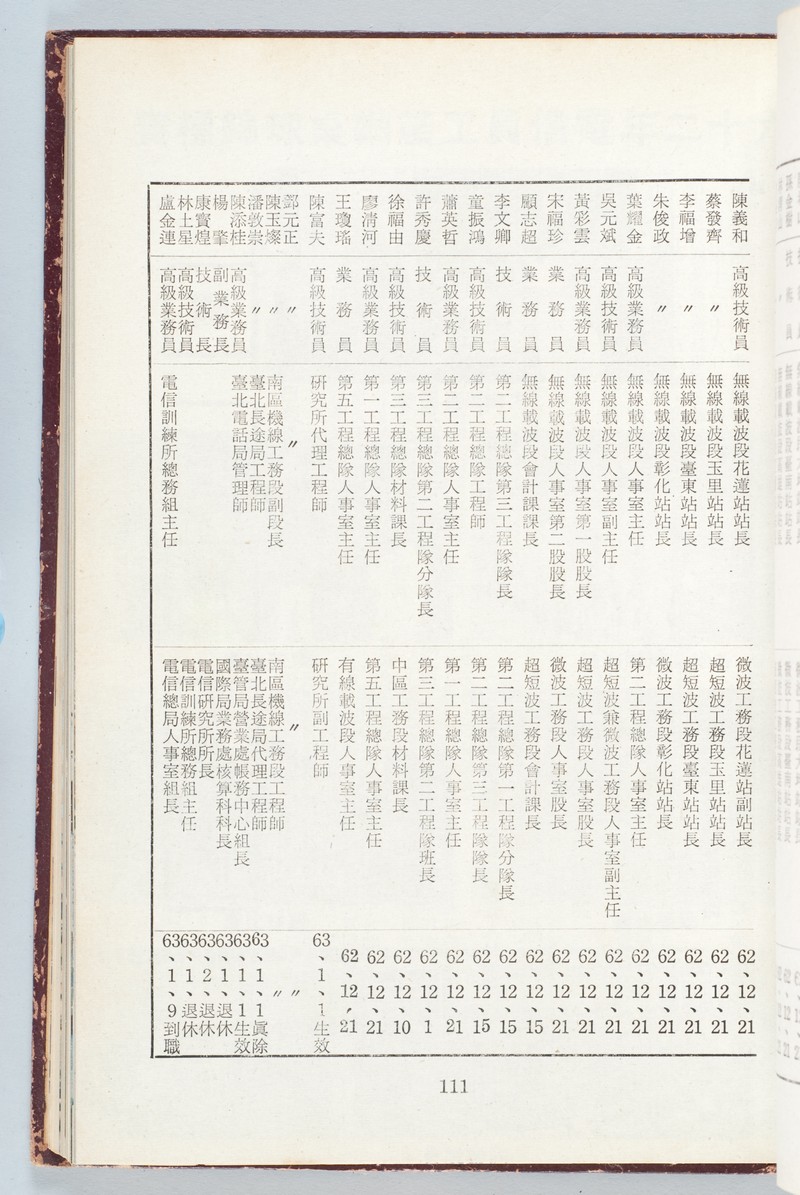 陳義和 高級技術員 無線載波段花蓮站站長 微波工務段花蓮站副站長 62、12、21
蔡發齊 〃 無線載波段玉里站站長 超短波工務段玉里站站長 62、12、21
李福增 〃 無線載波段臺東站站長 超短波工務段臺東站站長 62、12、21
朱俊政 〃 無線載波段彰化站站長 微波工務段彰化站站長 62、12、21
葉耀金 高級業務員 無線載波段人事室主任 第二工程總隊人事室主任 62、12、21
吳元斌 高級技術員 無線載波段人事室副主任 超短波兼微波工務段人事室副主任 62、12、21
黃彩雲 高級業務員 無線載波段人事室第一股股長 超短波工務段人事室股長 62、12、21
宋福珍 業務員 無線載波段人事室第二股股長 微波工務段人事室股長 62、12、21
顧志超 業務員 無線載波段會計課課長 超短波工務段會計課長 62、12、15
李文卿 技術員 第二工程總隊第三工程隊隊長 第二工程總隊第一工程隊分隊長 62、12、15
童振鴻 高級技術員 第二工程總隊工程師 第二工程總隊第三工程隊隊長 62、12、15
蕭英哲 高級業務員 第二工程總隊人事室主任 第一工程總隊人事室主任 62、12、21
許秀慶 技術員 第三工程總隊第二工程隊分隊長 第三工程總隊第二工程隊班長 62、12、1
徐福由 高級技術員 第三工程總隊材料課長 中區工務段材料課長 62、12、10
廖清河 高級業務員 第一工程總隊人事室主任 第五工程總隊人事室主任 62、12、21
王瓊瑤 業務員 第五工程總隊人事室主任 有線載波段人事室主任 62、12、21
陳富夫 高級技術員 研究所代理工程師 研究所副工程師 63、1、1生效
元正 〃 〃 〃 〃
陳玉燦 〃 南區機線工務段副段長 南區機線工務段工程師 〃
潘敦崇 〃 臺北長途局工程師 臺北長途局代理工程師 63、1、1眞除
陳添桂 高級業務員 臺北電話局管理師 臺管局營業處帳務中心組長 63、1、1生效
楊肇 副業務長 國際局業務處核算科科長 63、1、退休
康寶煌 技術長 電信研究所所長 63、2、退休
林土星 高級技術員 電信訓練所總務組主任 63、1、退休
盧金連 高級業務員 電信訓練所總務組主任 電信總局人事室組長 63、1、9到職
111